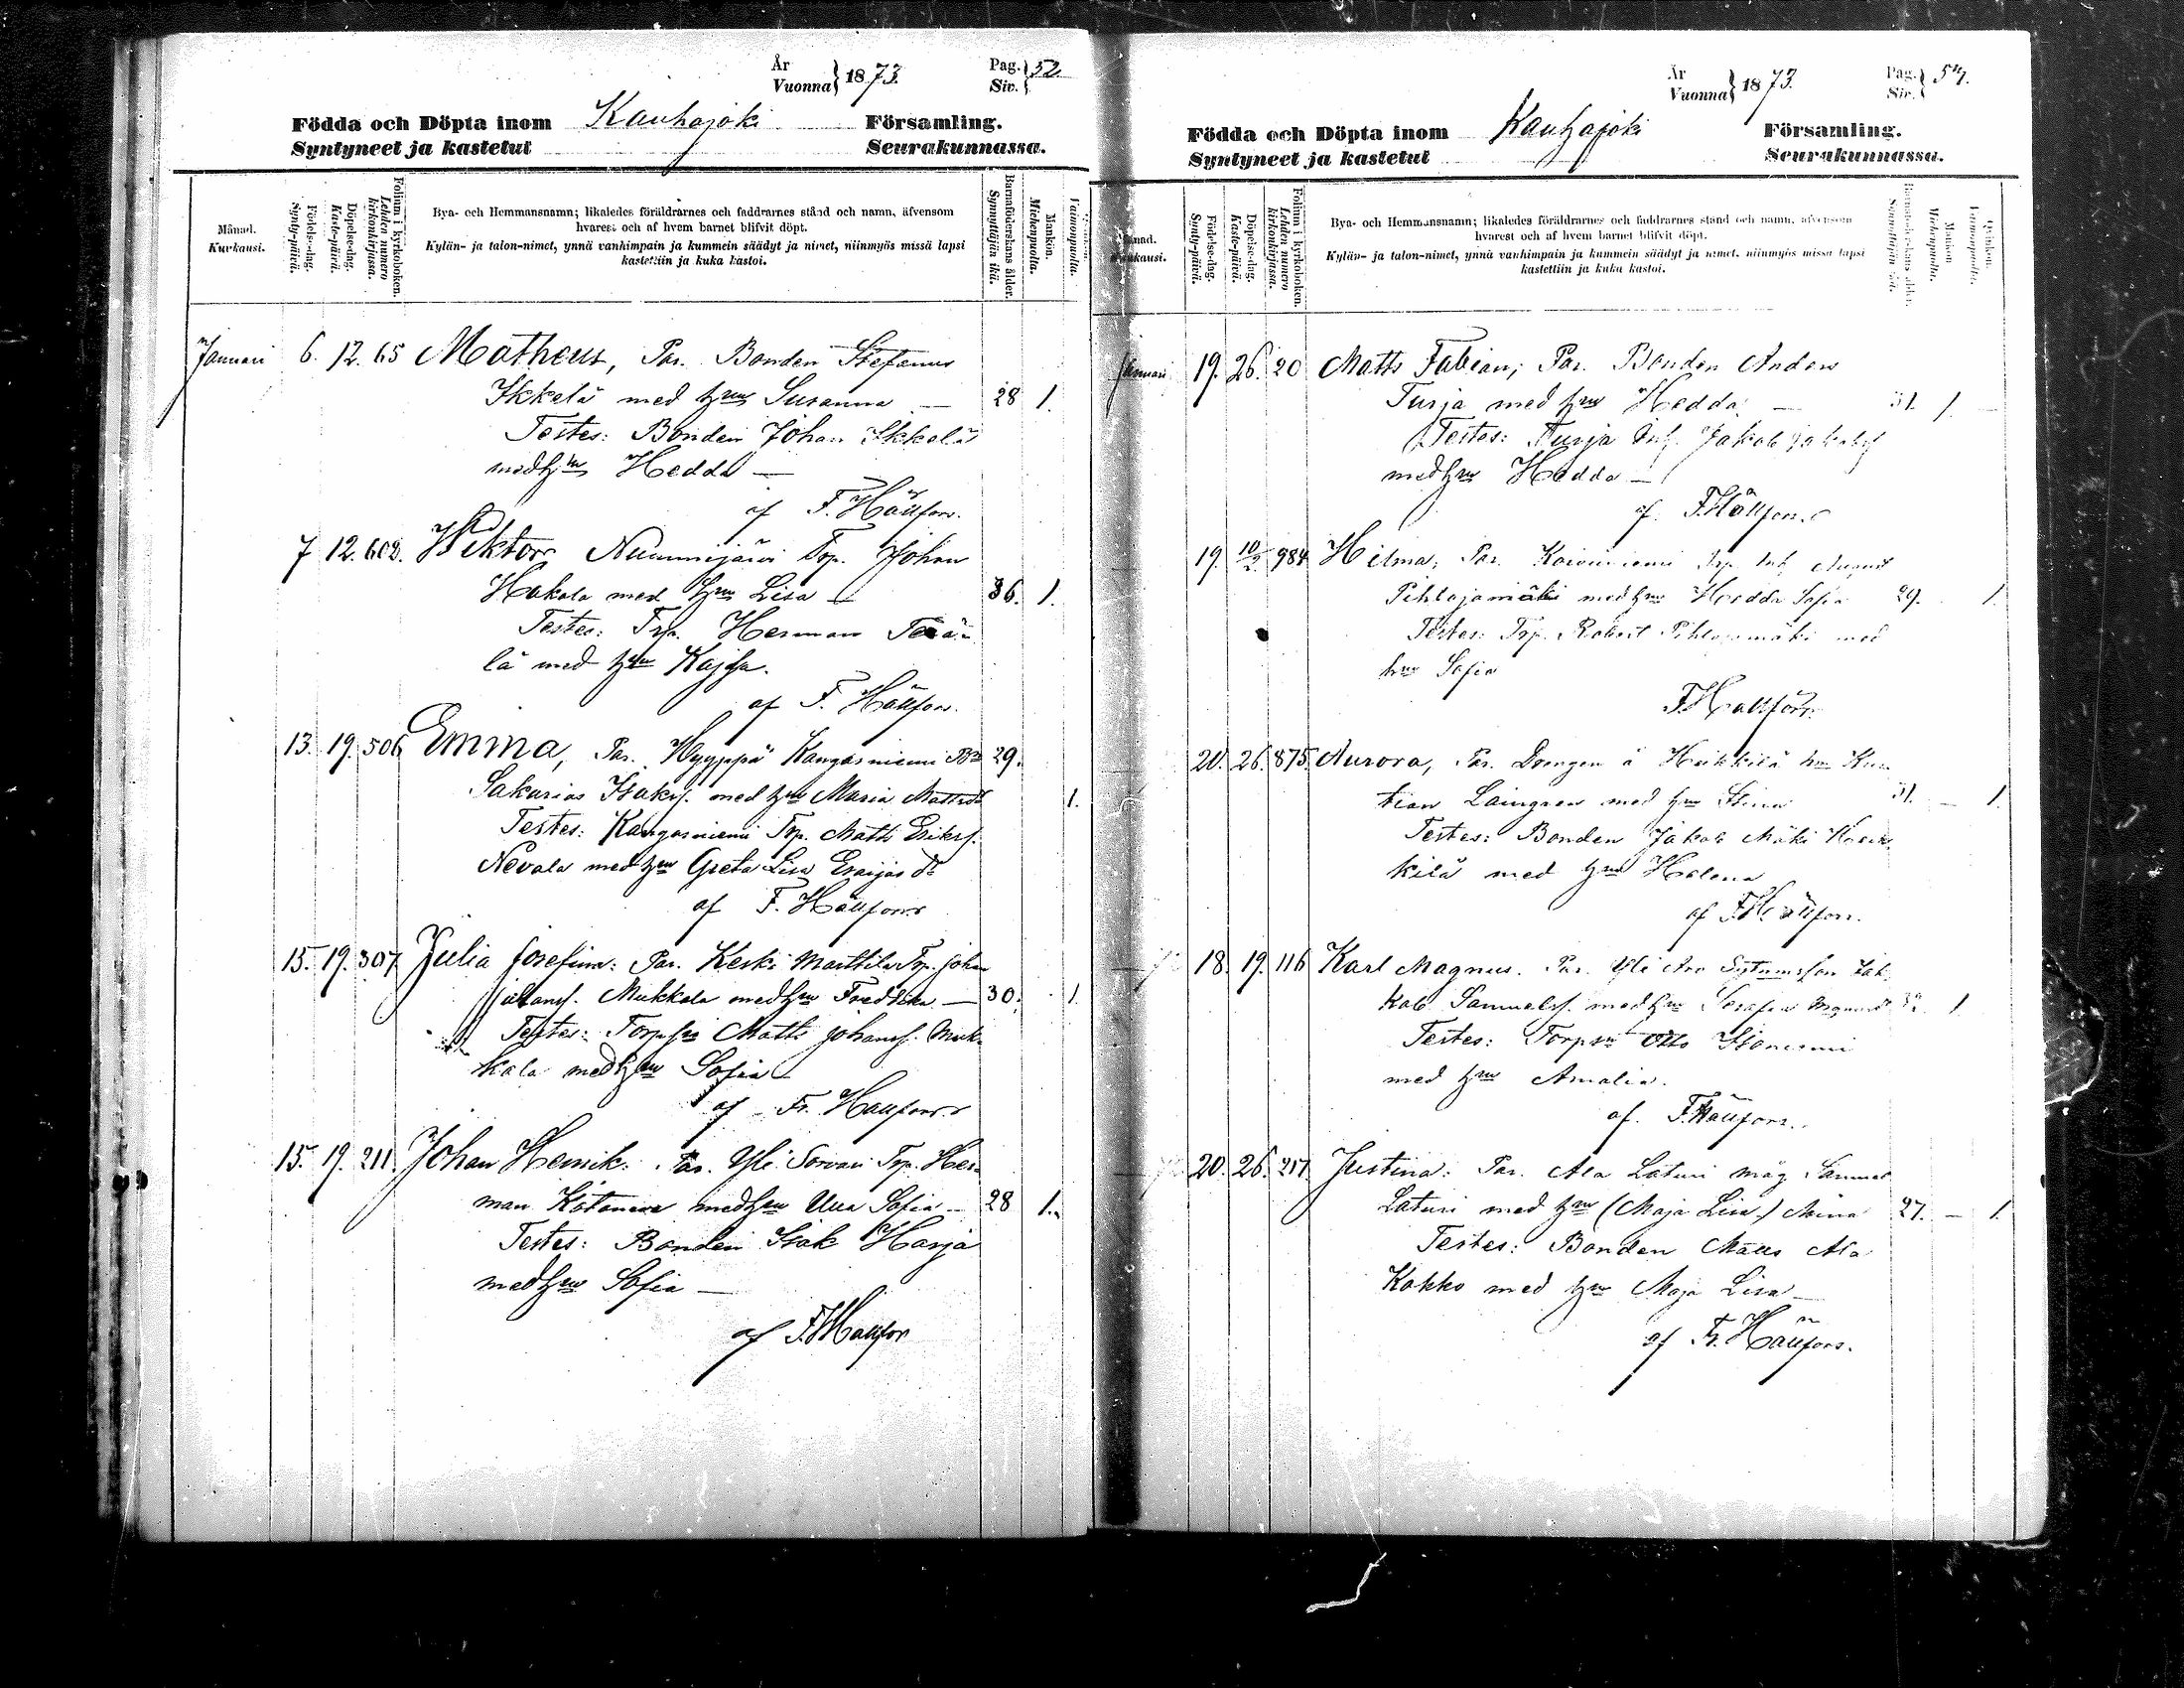 År
Vuonna } 1873.
Pag.
Siv. } 52
Födda och Döpta inom Kauhajoki Församling.
Syntyneet ja kastetut Seurakunnassa.
Månad.
Kuukausi.
Födelse-dag.
Synty-päivä.
Döpelse-dag.
Kaste-päivä.
Folium i kyrkoboken.
Lehden numero kirkonkirjassa.
Bya- och Hemmansnamn; likaledes föräldrarnes och faddrarnes stånd och namn, äfvensom
hvarest och af hvem barnet blifvit döpt.
Kylän- ja talon-nimet, ynnä vanhimpain ja kummein säädyt ja nimet, niinmyös missä lapsi
kastettiin ja kuka kastoi.
Barnaföderskans ålder.
Synnyttäjän ikä.
Mankön.
Miehenpuolia.
Vaimonpuolia.
Januari 6. 12. 65 Matheus, Par. Bonden Stefanus
Ikkelä med hru Susanna — 28 1.
Testes: Bonden Johan Ikkelä
med hru Hedda —
af F. Hällfors.
7 12. 602. Wiktor Nummijärvi Trp. Johan
Hakala med hru Lisa — 36. 1.
Testes: Trp. Herman Terä-
lä med hru Kajsa.
af F. Hällfors.
13. 19. 506 Emma, Par. Hyyppä Kangasniemi 29.
Sakarias Isaksf. med hru Maria Mattsdr 1.
Testes: Kangasniemi Trp. Matts Eriksf.
Nevala med hru Greta Lisa Esaijas dr
af F. Hällfors
15. 19. 307 Julia Josefina: Par. Keski Marttila Trp. Johan
Johansf. Mukkala med hru Fredrika — 30. 1.
Testes: Matts Johansf. Muk-
kala med hru Sofia —
af Fr. Hällfors
15. 19. 211. Johan Henrik: Par. Yli Sorvari Trp. Her-
man med hru Ulla Sofia — 28 1.
Testes: Bonden Isak Harja
med hru Sofia —
af F. Hällfors
År
Vuonna } 1873.
Pag.
Siv. } 54.
Födda och Döpta inom Kauhajoki Församling.
Syntyneet ja kastetut Seurakunnassa.
Månad.
Kuukausi.
Födelse-dag.
Synty-päivä.
Döpelse-dag.
Kaste-päivä.
Folium i kyrkoboken.
Lehden numero kirkonkirjassa.
Bya- och Hemmansnamn; likaledes föräldrarnes och faddrarnes stånd och namn, äfvensom
hvarest och af hvem barnet blifvit döpt.
Kylän- ja talon-nimet, ynnä vanhimpain ja kummein säädyt ja nimet, niinmyös missä lapsi
kastettiin ja kuka kastoi.
Barnaföderskans ålder.
Synnyttäjän ikä.
Mankön.
Miehenpuolia.
Qvinkön.
Vaimonpuolia.
Januari 19. 26. 20 Matts Fabian; Par. Bonden Anders
Turja med hru Hedda — 31. 1. —
Testes: Turja Inh. Jakob Jakobsf
med hru Hedda —
af F. Hällfors
19. 10/2. 984 Hilma, Par. Koivuniemi Trp. Inh. August
Pihlajamäki med hru Hedda Sofia 29. 1.
Testes: Trp. Robert Pihlajamäki med
hru Sofia
F. Hällfors.
20. 26. 875. Aurora, Par. Drengen å Heikkilä
tian med hru Stina 31. — 1.
Testes: Bonden Jakob Mäki Heik-
kilä med hru Helena
af F. Hällfors.
18. 19. 116 Karl Magnus. Par. Yli Aro Jak-
kob Samuelsf. med hru Serafia 1
Testes: Otto
med hru Amalia.
af F. Hällfors.
20. 26. 217. Justina: Par. Ala Laturi måg Samuel
Laturi med hru (Maja Lisa) Mina 27. — 1.
Testes: Bonden Matts Ala
Kokko med hru Maja Lisa —
af Fr. Hällfors.